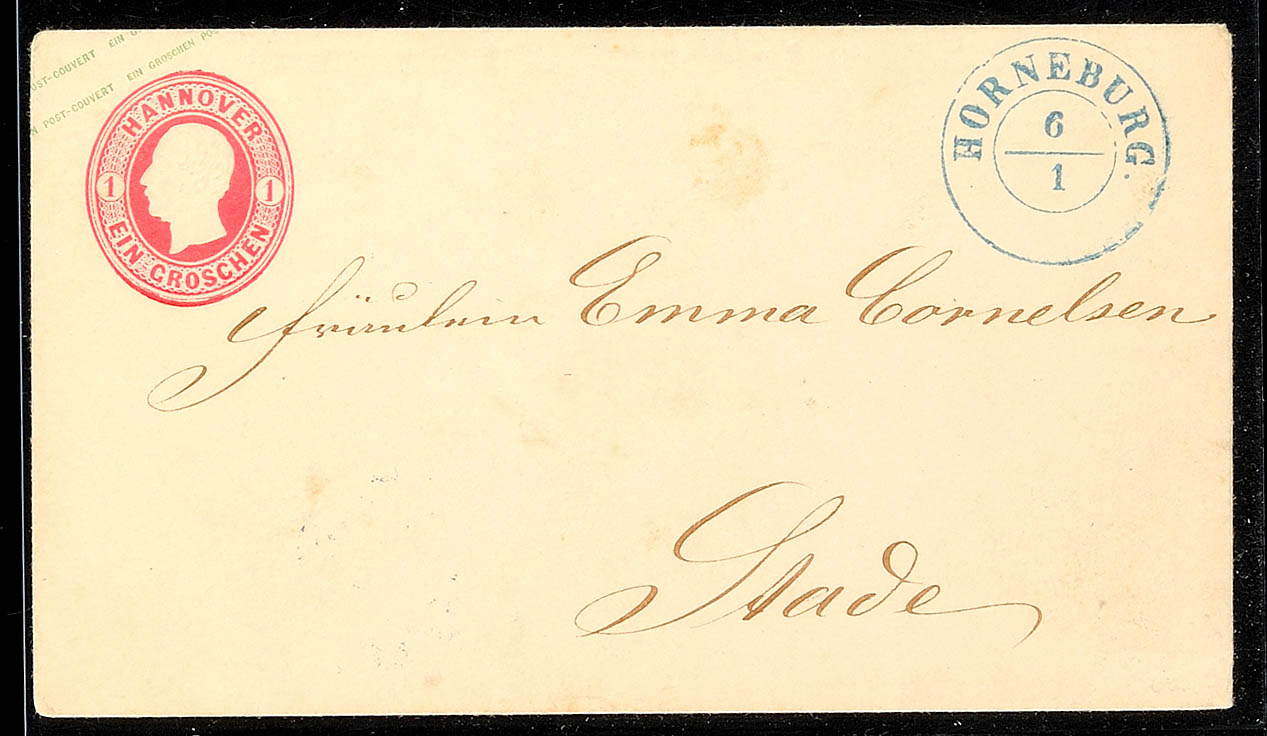 OST-COUVERT EIN G
N POST-COUVERT EIN GROSCHEN POS
HANNOVER
1 1
EIN GROSCHEN
HORNEBURG.
6
1
Fräulein Emma Cornelsen
Stade